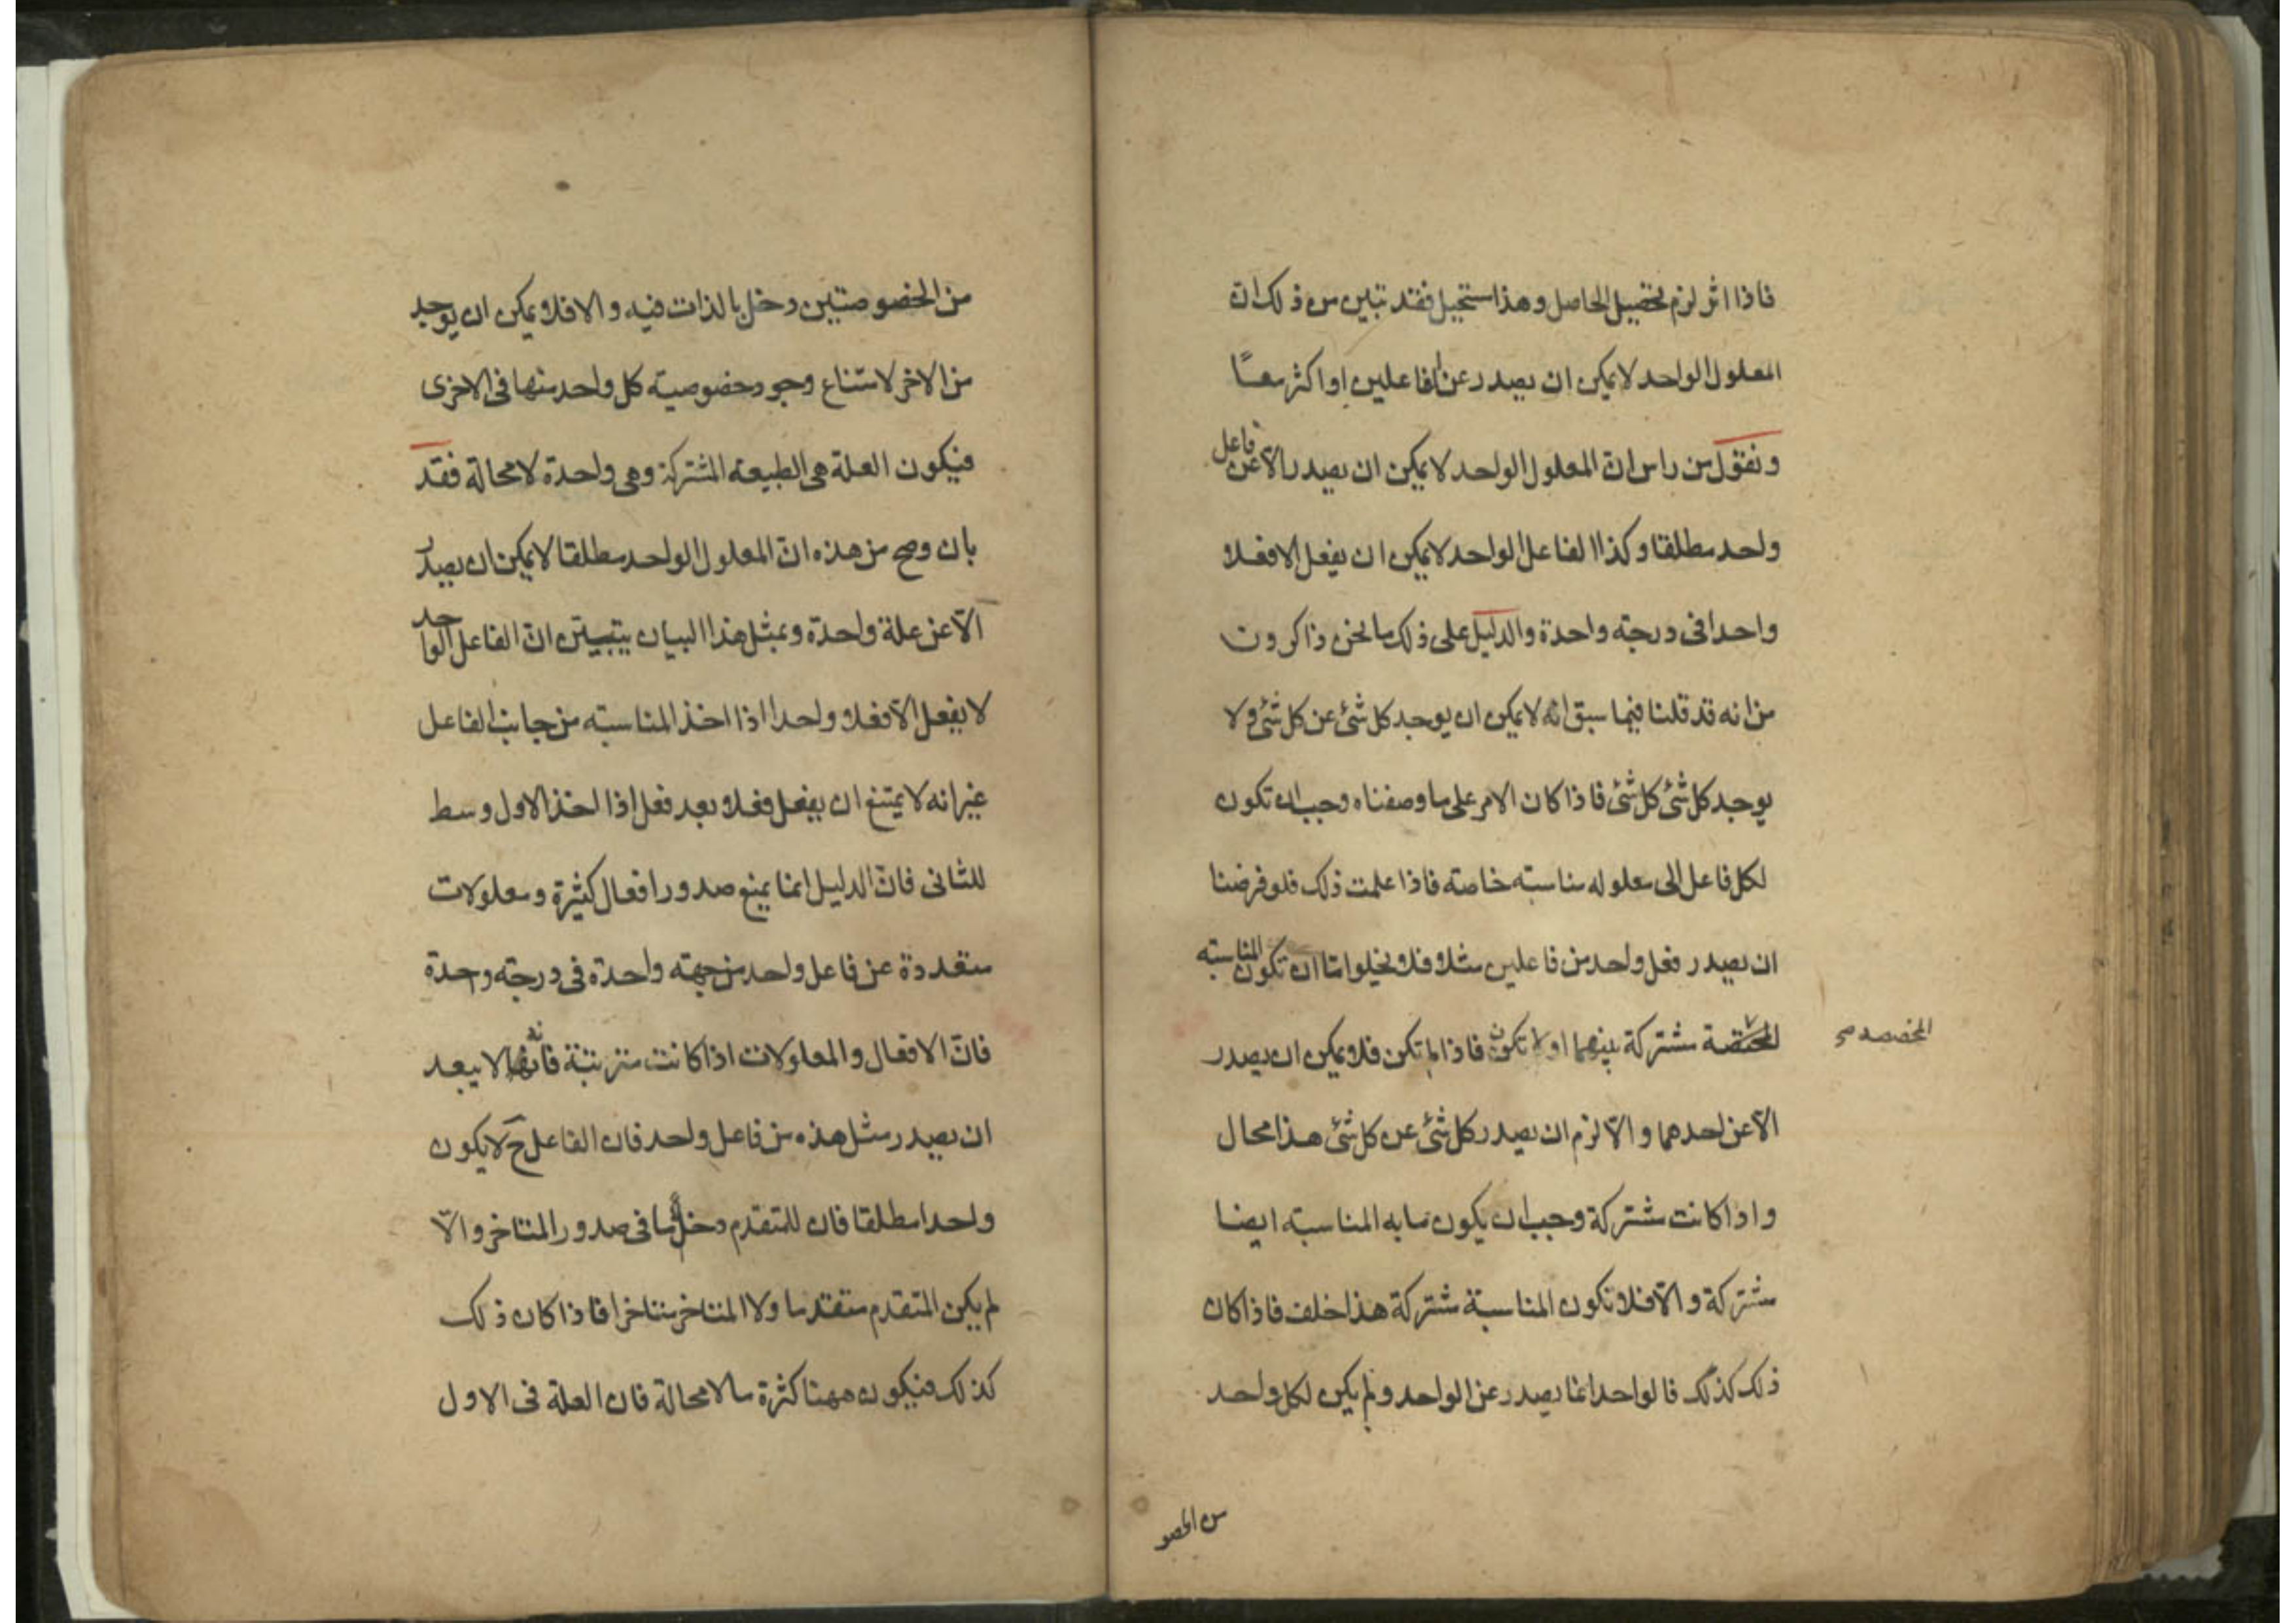 فاذا اثر لزم تحصيل الحاصل وهذا مستحيل فقد تبين من ذلك انّ
المعلول الواحد لا يمكن ان يصدر عن الفاعلين او اكثر معًا
ونقول من راس انّ المعلول الواحد لا يمكن ان يصدر الّا عن فاعل
واحد مطلقا وكذا الفاعل الواحد لا يمكن ان يفعل الا فعلا
واحدا فى درجته واحدة والدليل على ذلك ما نحن ذاكرون
من انه قد قلنا فيما سبق انّه لا يمكن ان يوجد كل شئ عن كل شئ ولا
يوجد كل شئ كل شئ فاذا كان الامر على ما وصفناه وجب ان تكون
لكل فاعل الى معلوله مناسبته خاصته فاذا علمت ذلك فلو فرضنا
ان يصدر فعل واحد من فاعلين مثلا فلا يخلوا امّا ان تكون المناسبته
المختصة مشتركة بينهما او لا تكون فاذا لم تكن فلا يمكن ان يصدر
المخصصه صح
الّا عن احدهما والّا لزم ان يصدر كل شئ عن كل شئ هذا محال
واذا كانت مشتركة وجب ان يكون ما به المناسبته ايضا
مشتركة والّا فلا تكون المناسبة مشتركة هذا خلف فاذا كان
ذلك كذلك فالواحد انما يصدر عن الواحد ولم يكن لكل واحد
من الخصو
من الخصوصتين دخل بالذات فيه والا فلا يمكن ان يوجد
من الاخر لامتناع وجود خصوصيته كل واحد منها فى الاخرى
فيكون العلة هى الطبيعته المشتركة وهى واحدة لا محالة فقد
بان وصح من هذه انّ المعلول الواحد مطلقا لا يمكن ان يصدر
الّا عن علة واحدة وبمثل هذا البيان يتبيّن انّ الفاعل الواحد
لا يفعل الّا فعلا واحدا اذا اخذ المناسبته من جانب الفاعل
غير انه لا يمتنع ان يفعل فعلا بعد فعل اذا اخذ الاول وسط
للثانى فانّ الدليل انما يمنع صدور افعال كثيرة ومعلولات
متعددة عن فاعل واحد من جهته واحدة فى درجته وحدة
فانّ الافعال والمعلولات اذا كانت مترتبة فانّه لا يبعد
ان يصدر مثل هذه من فاعل واحد فان الفاعل ح لا يكون
واحدا مطلقا فان للمتقدم دخلًا ما فى صدور المتاخر والّا
لم يكن المتقدم متقدما ولا المتاخر متاخرا فاذا كان ذلك
كذلك فيكون ههنا كثرة ما لا محالة فان العلة فى الاول